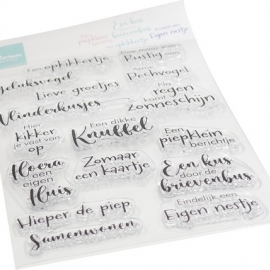 Een opkikkertje
Geluksvogel
Lieve groetjes
Vlinderkusjes
Hier
kikker
je vast van
op
Hoera
een eigen
Huis
Hieper de piep
Samenwonen
Een dikke
Knuffel
Zomaar
een kaartje
Rustig
Pechvogel
Na
regen
komt
zonneschijn
Een
piepklein
berichtje
Een kus
door de
brievenbus
Eindelijk een
Eigen nestje